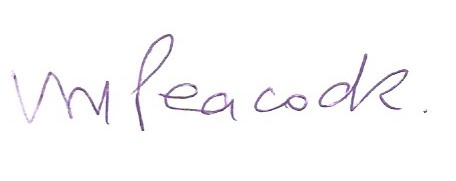 VM Peacock.